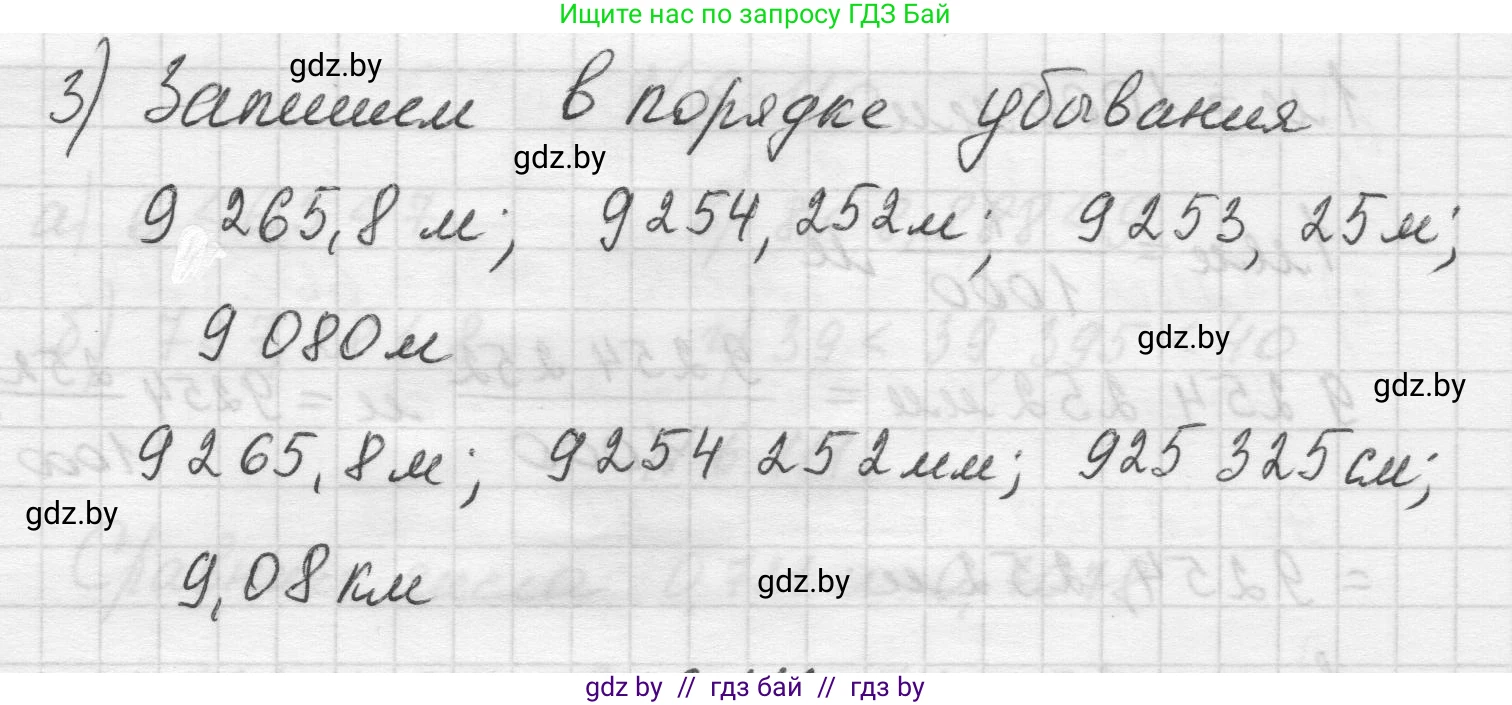 Ищите нас по запросу ГДЗ Бай
gdz.by
3) Запишем в порядке убывания
gdz.by
9 265,8 м; 9254,252м; 9253,25м;
9 080м
gdz.by
gdz.by
9265,8м; 9254 252мм; 925 325см;
gdz.by
9,08км
gdz.by
gdz by // гдз бай // гдз by